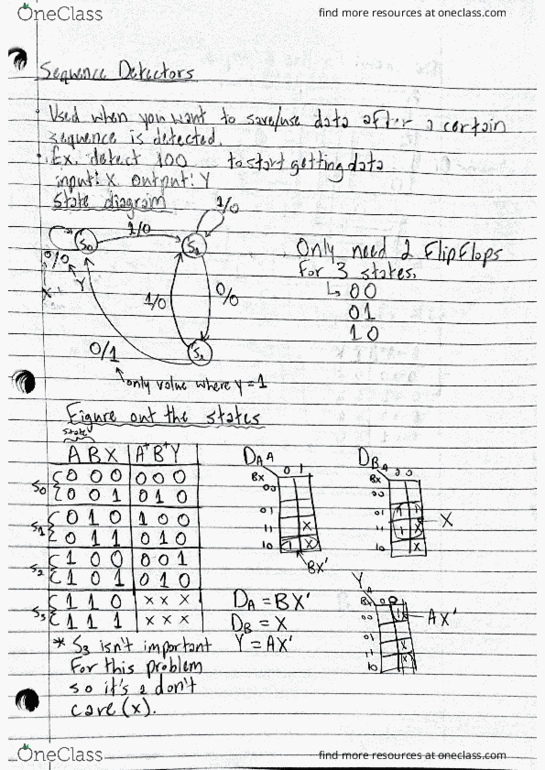 OneClass
find more resources at oneclass.com
Sequence Detectors
Used when you want to save/use data after a certain
sequence is detected.
Ex. detect 100 to start getting data
input: X output: Y
State diagram
1/0
1/0
S0
0/0
X
Y
1/0
0/0
0/1
only value where Y=1
Only need 2 FlipFlops
for 3 states.
00
01
10
Figure out the states
state
A B X A+ B+ Y
S0 0 0 0 0 0 0
0 0 1 0 1 0
S1 0 1 0 1 0 0
0 1 1 0 1 0
S2 1 0 0 0 0 1
1 0 1 0 1 0
S3 1 1 0 x x x
1 1 1 x x x
DA A
BX 0 1
00
01
11 X
10 1 X
BX'
DB A
BX
00
01 1 1
11 1 X
10 X
X
Y A
BX
00 1
01
11 X
10 X
AX'
DA = BX'
DB = X
Y = AX'
* S3 isn't important
for this problem
so it's a don't
care (x).
OneClass
find more resources at oneclass.com